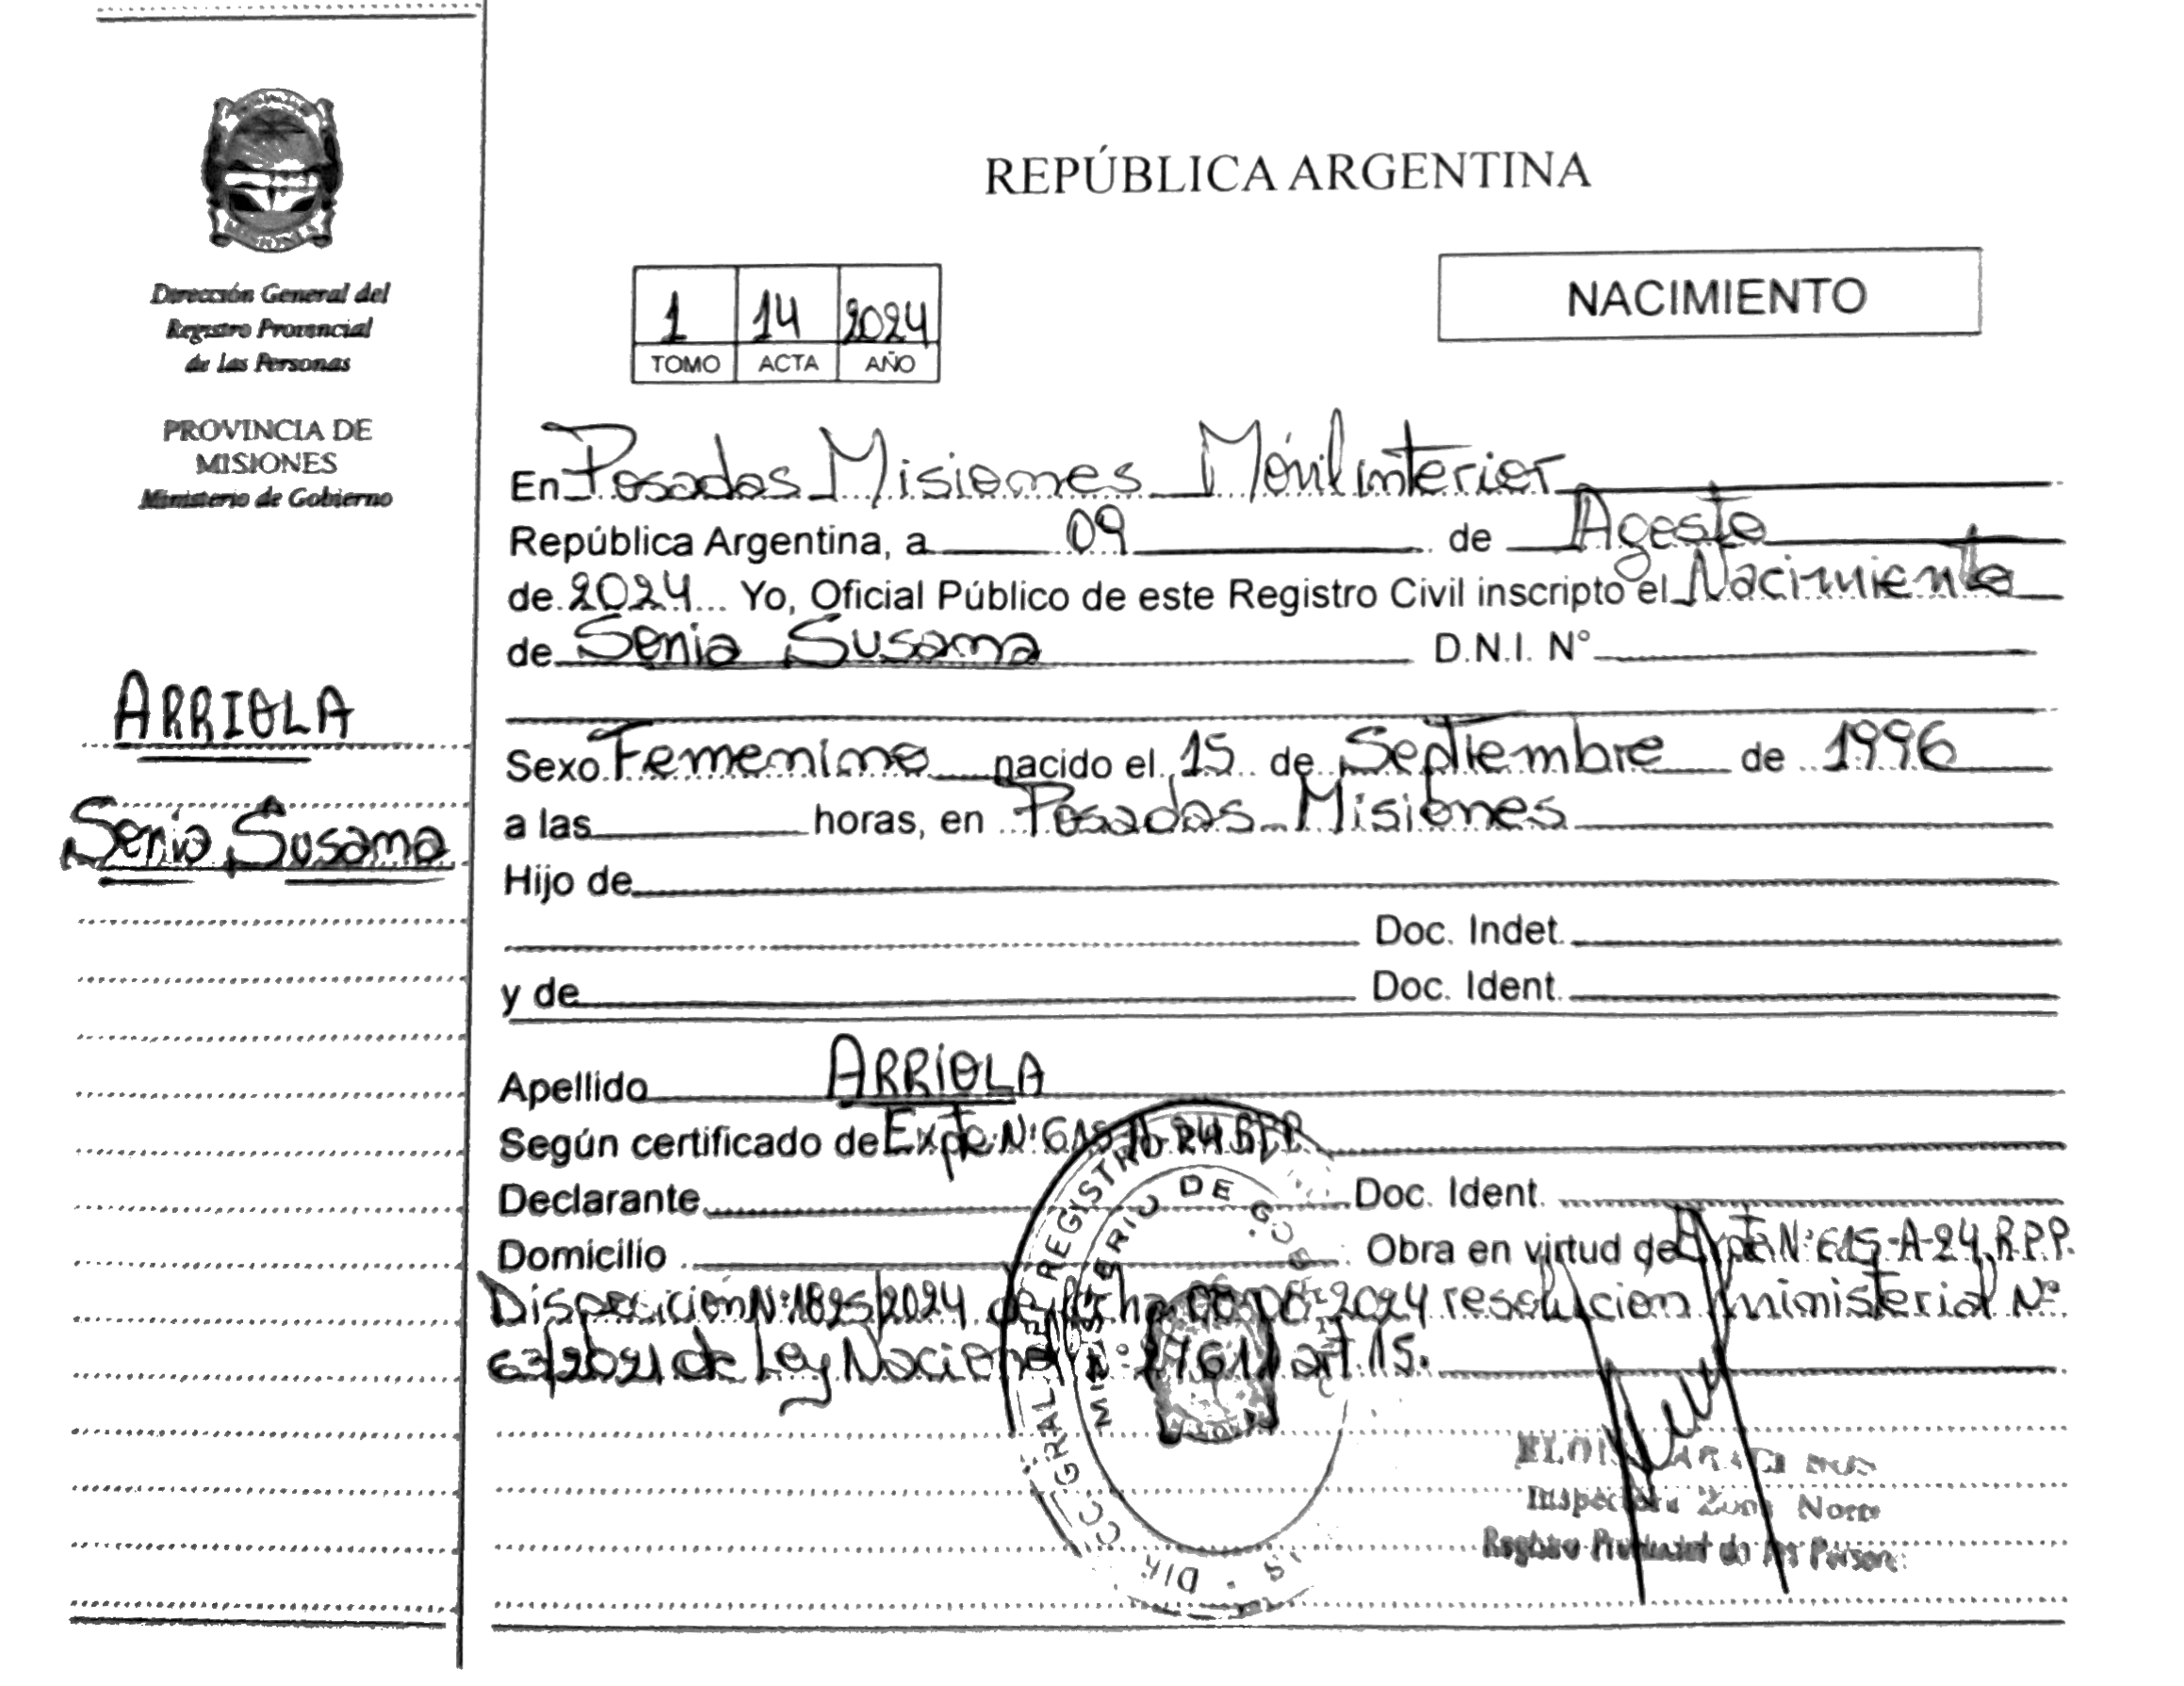 Dirección General del
Registro Provincial
de las Personas
PROVINCIA DE
MISIONES
Ministerio de Gobierno
ARRIOLA
Sonia Susana
REPÚBLICA ARGENTINA
1 14 2024
TOMO ACTA AÑO
NACIMIENTO
En Posadas Misiones Móvil interior
República Argentina, a 09 de Agosto
de 2024 Yo, Oficial Público de este Registro Civil inscripto el Nacimiento
de Sonia Susana D.N.I. N°
Sexo Femenino nacido el 15 de Septiembre de 1996
a las horas, en Posadas Misiones
Hijo de
Doc. Indet.
y de Doc. Ident.
Apellido ARRIOLA
Según certificado de Expte N° 615-A-24 R.P.P.
Declarante Doc. Ident.
Domicilio Obra en virtud de Expte N° 615-A-24 R.P.P.
Disposición N° 1825/2024 de fecha 2024 resolución ministerial N°
63/2021 de Ley Nacional N° 27611 art. 15.
Inspectora Zona Norte
Registro Provincial de las Person